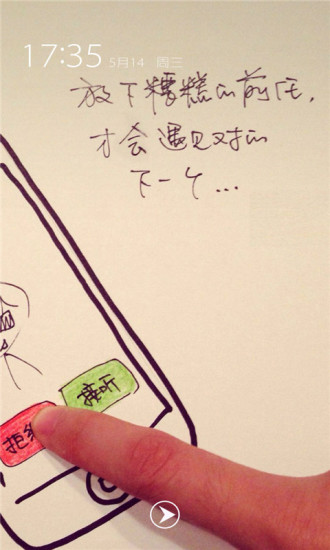 17:35 5月14 周三
放下糟糕的前任,
才会遇见对的
下一个...
接听
拒绝